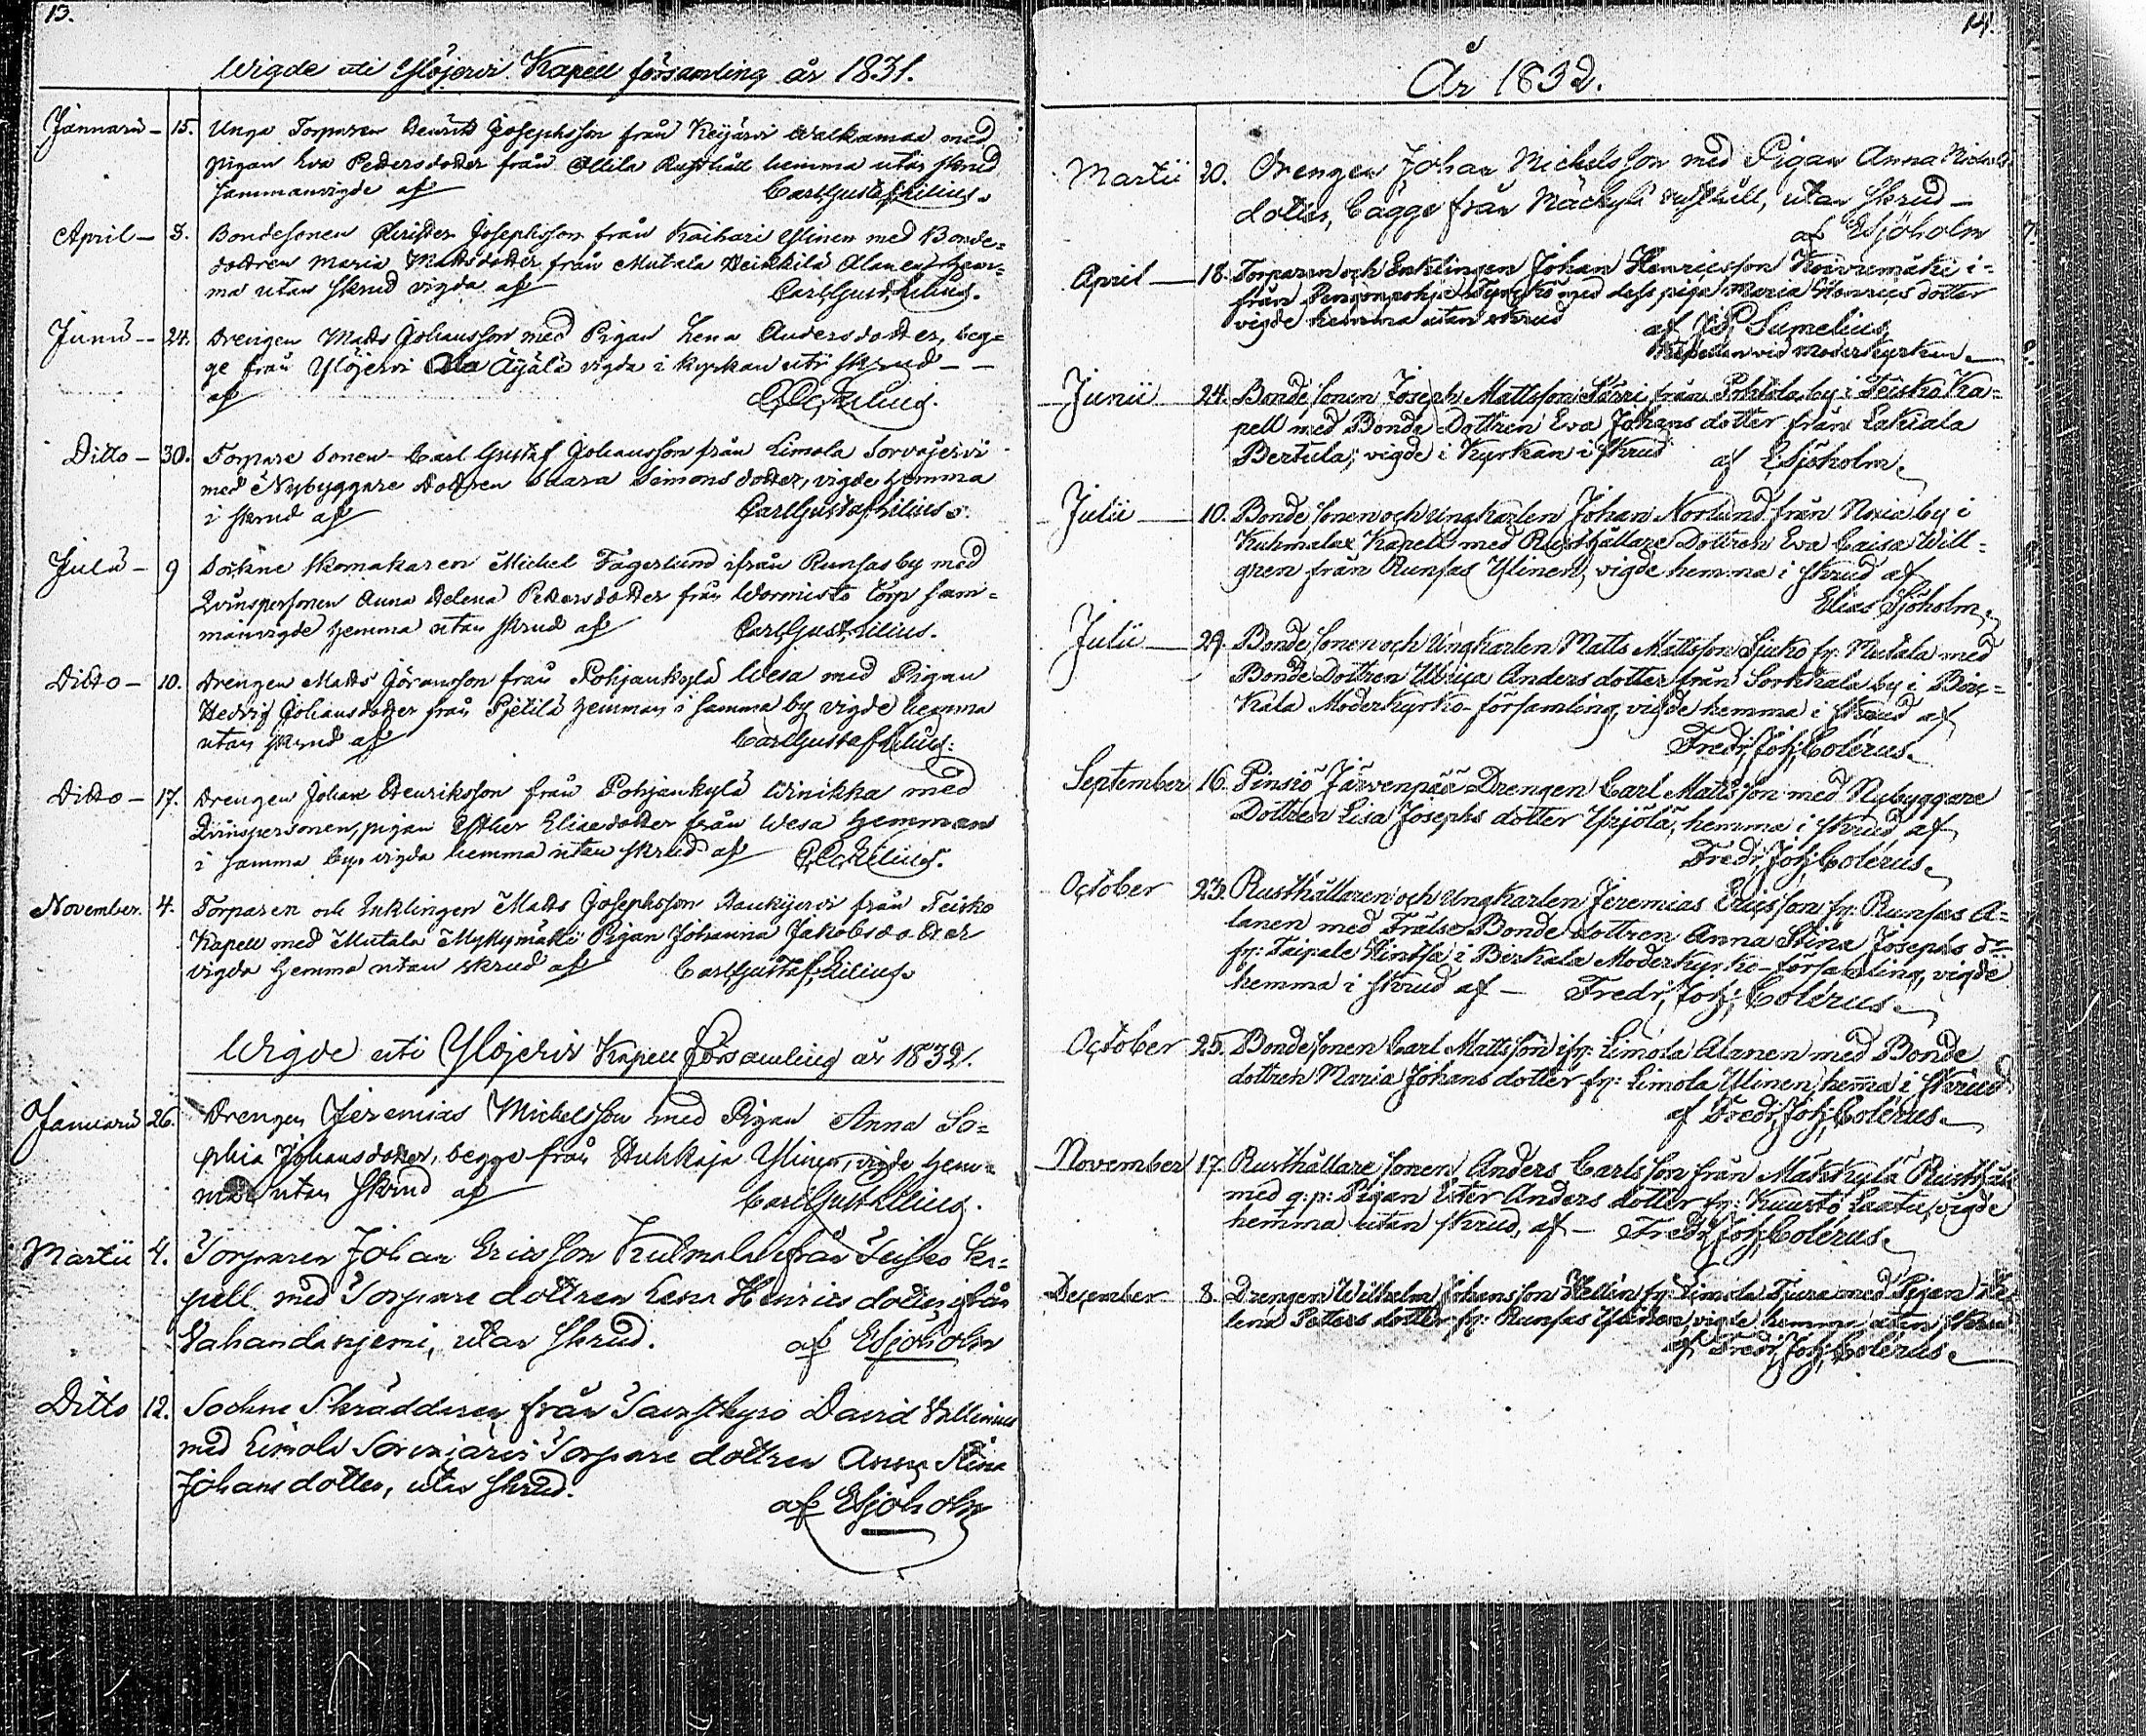 13.
Wigde uti Ylöjervi Kapell församling år 1831.
Januarii – 15. Unga Torparen Henrik Josephsson från Keijärvi Walkamaa med
pigan Eva Pettersdotter från Ollila Rusthåll hemma utan skrud
sammanvigde af Carl Gustaf Lilius.
April – 3. Bondesonen Christer Josephsson från Kaihari Ylinen med Bonde=
dottren Maria Mattsdotter från Mutala Heikkilä Alanen, hem=
ma utan skrud vigda af Carl Gust. Lilius.
Junii – 24. Drengen Matts Johansson med Pigan Lena Andersdotter, beg=
ge från Ylöjervi Äijälä vigda i kyrkan uti skrud – –
af C. G. Lilius.
Ditto – 30. Torpare Sonen Carl Gustaf Johansson från Limola Sorvajervi
med Nybyggare Dottren Saara Simonsdotter, vigde hemma
i skrud af Carl Gustaf Lilius.
Julii – 9 Sockne Skomakaren Michel Fagerlund ifrån Runsas by med
Qvinspersonen Anna Helena Pettersdotter från Wormisto Torp sam=
manvigde hemma utan skrud af Carl Gust. Lilius.
Ditto – 10. Drengen Matts Göransson från Pohjankylä Wesa med Pigan
Hedvig Johansdotter från Pjetilä hemman i samma by vigde hemma
utan skrud af Carl Gustaf Lilius.
Ditto – 17. Drengen Johan Henriksson från Pohjankylä Winikka med
Qvinspersonen, pigan Esther Eliædotter från Wesa hemman
i samma by, vigda hemma utan skrud af C. G. Lilius.
November. 4. Torparen och Enklingen Matts Josephsson Haukijervi från Teisko
Kapell med Mutala Mykymäki Pigan Johanna Jakobsdotter
vigda hemma utan skrud af Carl Gustaf Lilius.
Wigde uti Ylöjervi Kapell församling år 1832.
Januarii 26. Drengen Jeremias Michelsson med Pigan Anna So=
phia Johansdotter, begge från Huhkaja Ylinen, vigde hem=
ma utan skrud af Carl Gust. Lilius.
Martii 4. Torparen Johan Ericsson Kulmala ifrån Teisko Ka=
pell med Torpare dottren Lena Henrics dotter ifrån
Vahandanjemi, utan skrud. af E Sjöholm
Ditto 12. Sockne Skräddaren från Tavastkyro David Wallenius
med Limola Sorvajärvi Torpare dottren Anna Stina
Johans dotter, utan skrud. af E Sjöholm
14.
År 1832.
Martii 20. Drengen Johan Michelsson med Pigan Anna Michels
dotter, bägge från Mäckylä rusthåll, utan skrud –
af E Sjöholm
April – 18. Torparen och Enklingen Johan Henricsson Koivumäki i=
från Pengonpohja med dess piga Maria Henrics dotter
vigde hemma utan skrud af Sumelius,
Kapellan vid moderkyrkan.
Junii 24. Bonde sonen Joseph Mattsson Särri från Pohtola by i Teisko Ka=
pell med Bonde Dottren Eva Johans dotter från Lakiala
Bertula; vigde i Kyrkan i skrud af E Sjöholm.
Julii – 10. Bonde sonen och ungkarlen Johan Norlund från Noxia by i
Kuhmalax Kapell med Rusthållare Dottren Eva Caisa Will=
gren från Runsas Ylinen, vigde hemma i skrud af
Elias Sjöholm.
Julii – 29. Bonde sonen och Ungkarlen Matts Mattsson Sjuko fr: Mutala med
Bonde Dottren Ulrica Anders dotter från Sorkkala by i Birc=
kala Moderkyrko-församling, vigde hemma i skrud af
Fredr: Joh: Colérus.
September 16. Pinsiö Järvenpää Drengen Carl Mattsson med Nybyggare
Dottren Lisa Josephs dotter Yrjölä, hemma i skrud af
Fredr: Joh: Colérus.
October 23. Rusthållaren och ungkarlen Jeremias Ericsson fr: Runsas A=
lanen med Frälse Bonde dottren Anna Stina Josephs dr
fr: Taipale Kintsa i Birkala Moderkyrko-församling, vigde
hemma i skrud af – Fredr: Joh: Colérus.
October 25. Bondesonen Carl Mattsson ifr: Limola Alanen med Bonde
dottren Maria Johans dotter fr: Limola Ylinen hemma i skrud.
af Fredr: Joh: Colérus.
November 17. Rusthållare sonen Anders Carlsson från Mäkkylä Rusthåll
med q: p: Pigan Ester Anders dotter fr: Kuusto Laatu, vigde
hemma utan skrud, af – Fredr: Joh: Colérus.
December 8. Drengen Wilhelm Johansson Hellin fr: Limola Tjura med Pigan He
lena Petters dotter fr: Runsas Ylinen, vigde hemma utan skrud
af Fredr: Joh: Colérus.